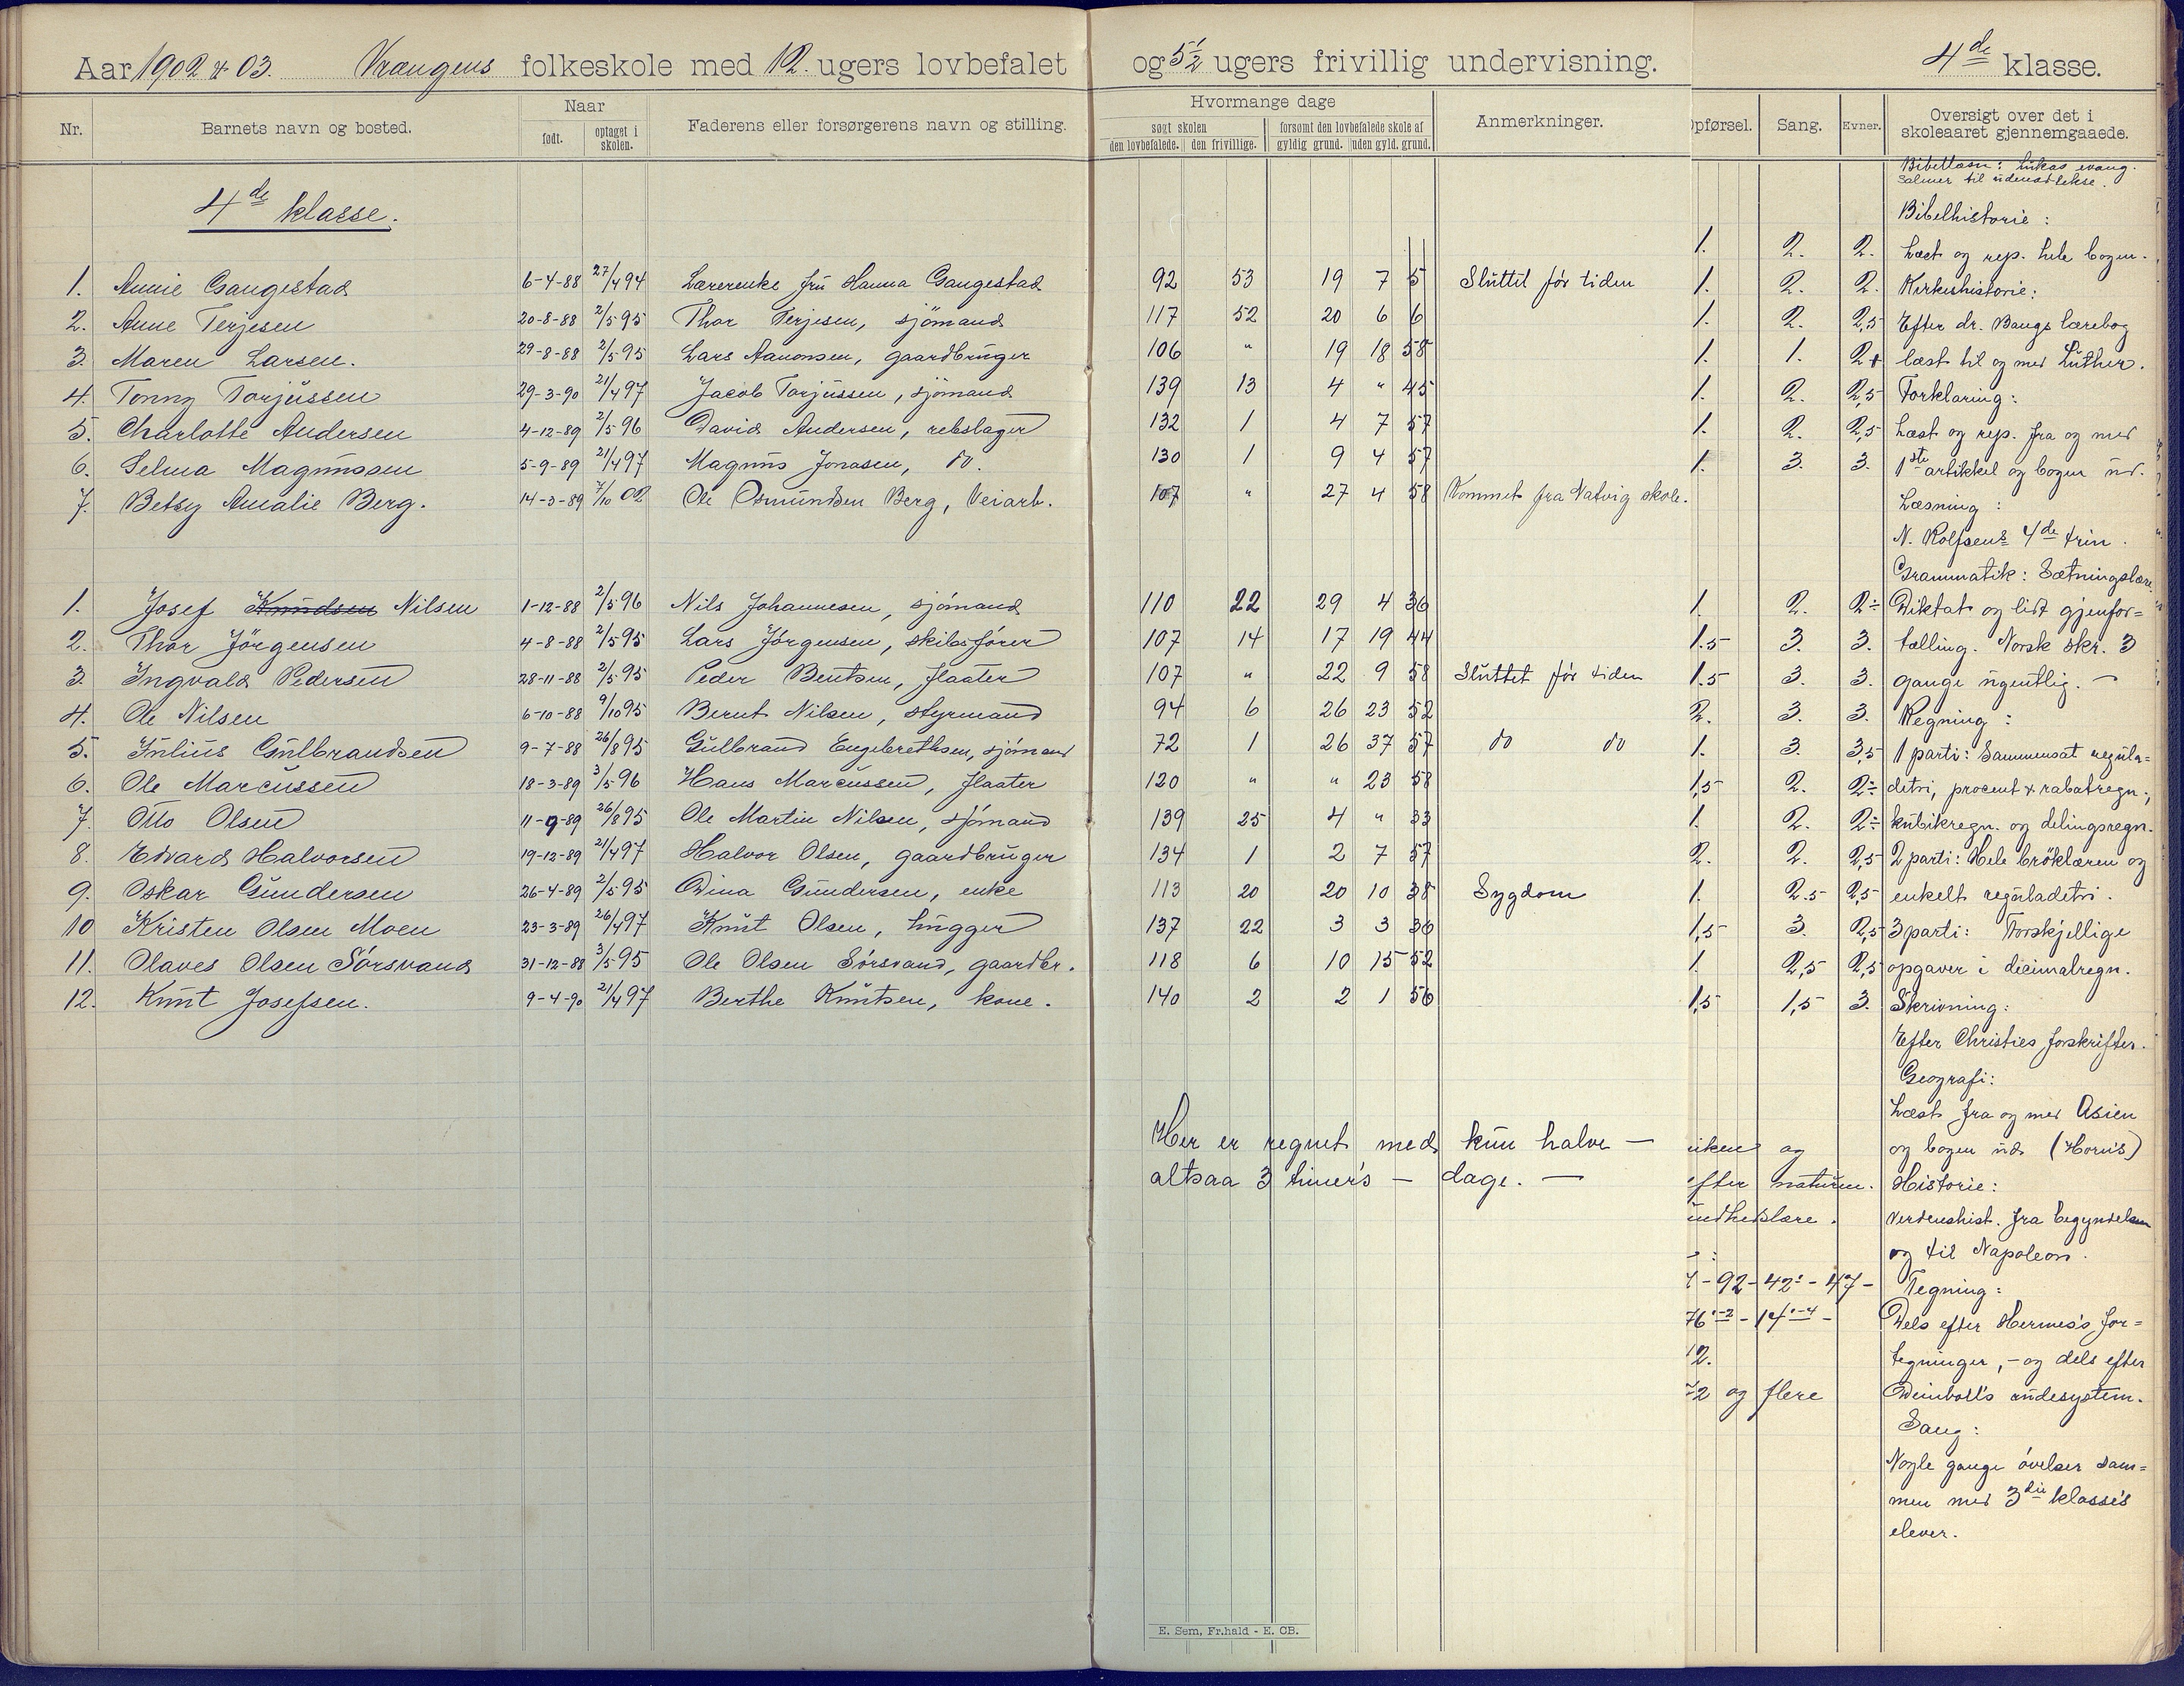 Aar 1902 & 03. Vrængens folkeskole med 12 ugers lovbefalet og 5 1/2 ugers frivillig undervisning. 4de klasse.
Nr. Barnets navn og bosted. Naar født. optaget i skolen. Faderens eller forsørgerens navn og stilling. Hvormange dage søgt skolen den lovbefalede. den frivillige. forsømt den lovbefalede skole af gyldig grund. uden gyld. grund. Anmerkninger. Opførsel. Sang. Evner. Oversigt over det i skoleaaret gjennemgaaede.
4de klasse.
1. Annie Gangestad 6-4-88 27/4 94 Lærerenke fru Hanna Gangestad 92 53 19 7 5 Sluttit før tiden
2. Anne Terjesen 20-8-88 2/5 95 Thor Terjesen, sjömand 117 52 20 6 6
3. Maren Larsen. 29-8-88 2/5 95 Lars Aanonsen, gaardbruger 106 " 19 18 58
4. Tonny Torjussen 29-3-90 21/4 97 Jacob Torjussen, sjömand 139 13 4 " 45
5. Charlotte Andersen 4-12-89 2/5 96 David Andersen, rebslager 132 1 4 7 57
6. Selma Magnussen 5-9-89 21/4 97 Magnus Jonasen, do. 130 1 9 4 57
7. Betsy Amalie Berg. 14-3-89 7/10 02 Ole Osmundsen Berg, Veiarb. 107 " 27 4 58 Kommet fra Natvig skole.
1. Josef Knudsen Nilsen 1-12-88 2/5 96 Nils Johannesen, sjömand 110 22 29 4 36
2. Thor Jörgensen 4-8-88 2/5 95 Lars Jörgensen, skibsfører 107 14 17 19 44
3. Ingvald Pedersen 28-11-88 2/5 95 Peder Bentsen, flaater 107 " 22 9 58 Sluttet før tiden
4. Ole Nilsen 6-10-88 9/10 95 Bernt Nilsen, styrmand 94 6 26 23 52
5. Julius Gulbrandsen 9-7-88 26/8 95 Gulbrand Engebrethsen, sjömand 72 1 26 37 57 do do
6. Ole Marcussen 18-3-89 3/5 96 Hans Marcussen, flaater 120 " " 23 58
7. Otto Olsen 11-9-89 26/8 95 Ole Martin Nilsen, sjömand 139 25 4 " 33
8. Edvard Halvorsen 19-12-89 21/4 97 Halvor Olsen, gaardbruger 134 1 2 7 57
9. Oskar Gundersen 26-4-89 2/5 95 Dina Gundersen, enke 113 20 20 10 38 Sygdom
10 Kristen Olsen Moen 23-3-89 26/4 97 Knut Olsen, hugger 137 22 3 3 36
11. Olaves Olsen Sörsvand 31-12-88 3/5 95 Ole Olsen Sörsvand, gaardbr. 118 6 10 15 52
12. Knut Josefsen. 9-4-90 21/4 97 Berthe Knutsen, kone. 140 2 2 1 56
Her er regnet med kun halve —
altsaa 3 timer's — dage. —
E. Sem, Fr.hald - E. CB.
1. 2. 2.
1. 2. 2.
1. 2. 2,5
1. 1. 2+
1. 2. 2,5
1. 2. 2,5
1. 3. 3.
1. 2. 2÷
1.5 3. 3.
1.5 3. 3.
2. 3. 3.
1. 3. 3,5
1,5 2. 2÷
1. 2. 2÷
2. 2. 2,5
1. 2.5 2,5
1,5 3. 2,5
1. 2,5 2,5
1,5 1,5 3.
og
efter naturen.
undhedslære.
- 92 - 42: - 47 -
12.
og flere
Bibellæsn: Lukas evang.
Salmer til udenadlekse.
Bibelhistorie:
Læst og rep. hele bogen.
Kirkehistorie:
Efter dr. Bangs lærebog
læst til og med Luther.
Forklaring:
Læst og rep. fra og med
1ste artikkel og bogen ud.
Læsning:
N. Rolfsens 4de trin.
Grammatik: Sætningslære
Diktat og lidt gjenfor=
tælling. Norsk skr. 3
gange ugentlig. —
Regning:
1 parti: Sammensat regula=
detri, procent & rabatregn.,
kubikregn. og delingsregn.
2 parti: Hele bröklæren og
enkelt reguladetri.
3 parti: Forskjellige
opgaver i decimalregn.
Skrivning:
Efter Christies forskrifter.
Geografi:
Læst fra og med Asien
og bogen ud. (Horn's)
Historie:
Verdenshist. fra begyndelsen
og til Napoleon.
Tegning:
Dels efter Hermes's for=
tegninger, - og dels efter
Sang:
Nogle gange övelser sam=
men med 3die klasse's
elever.